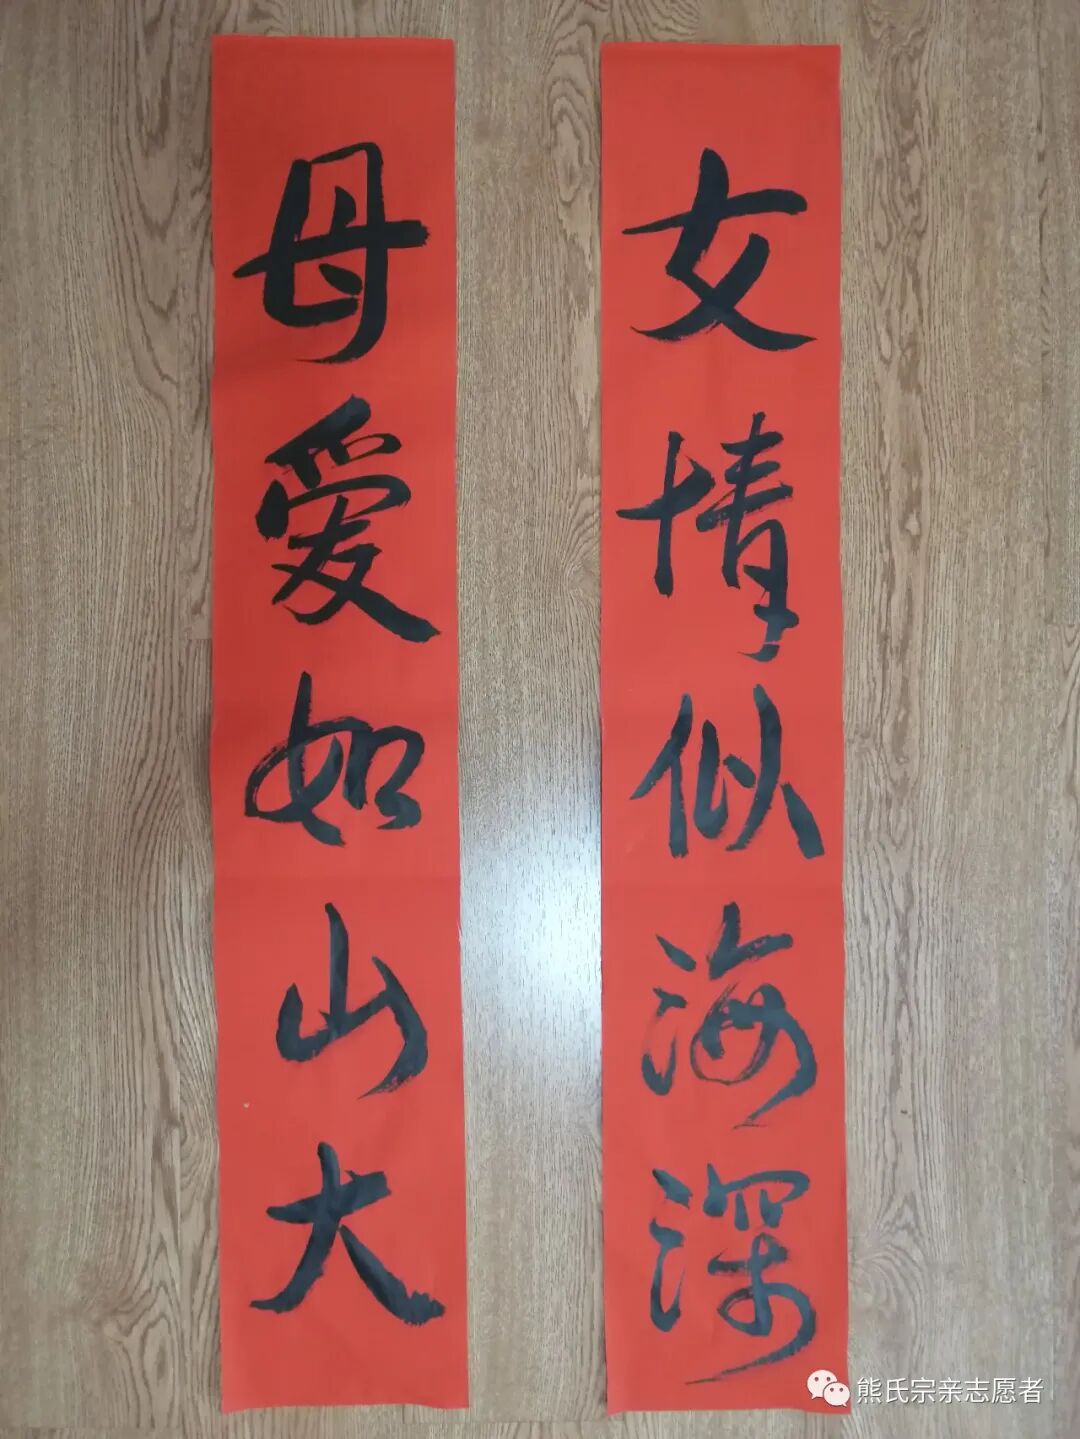 母爱如山大
女情似海深
熊氏宗亲志愿者